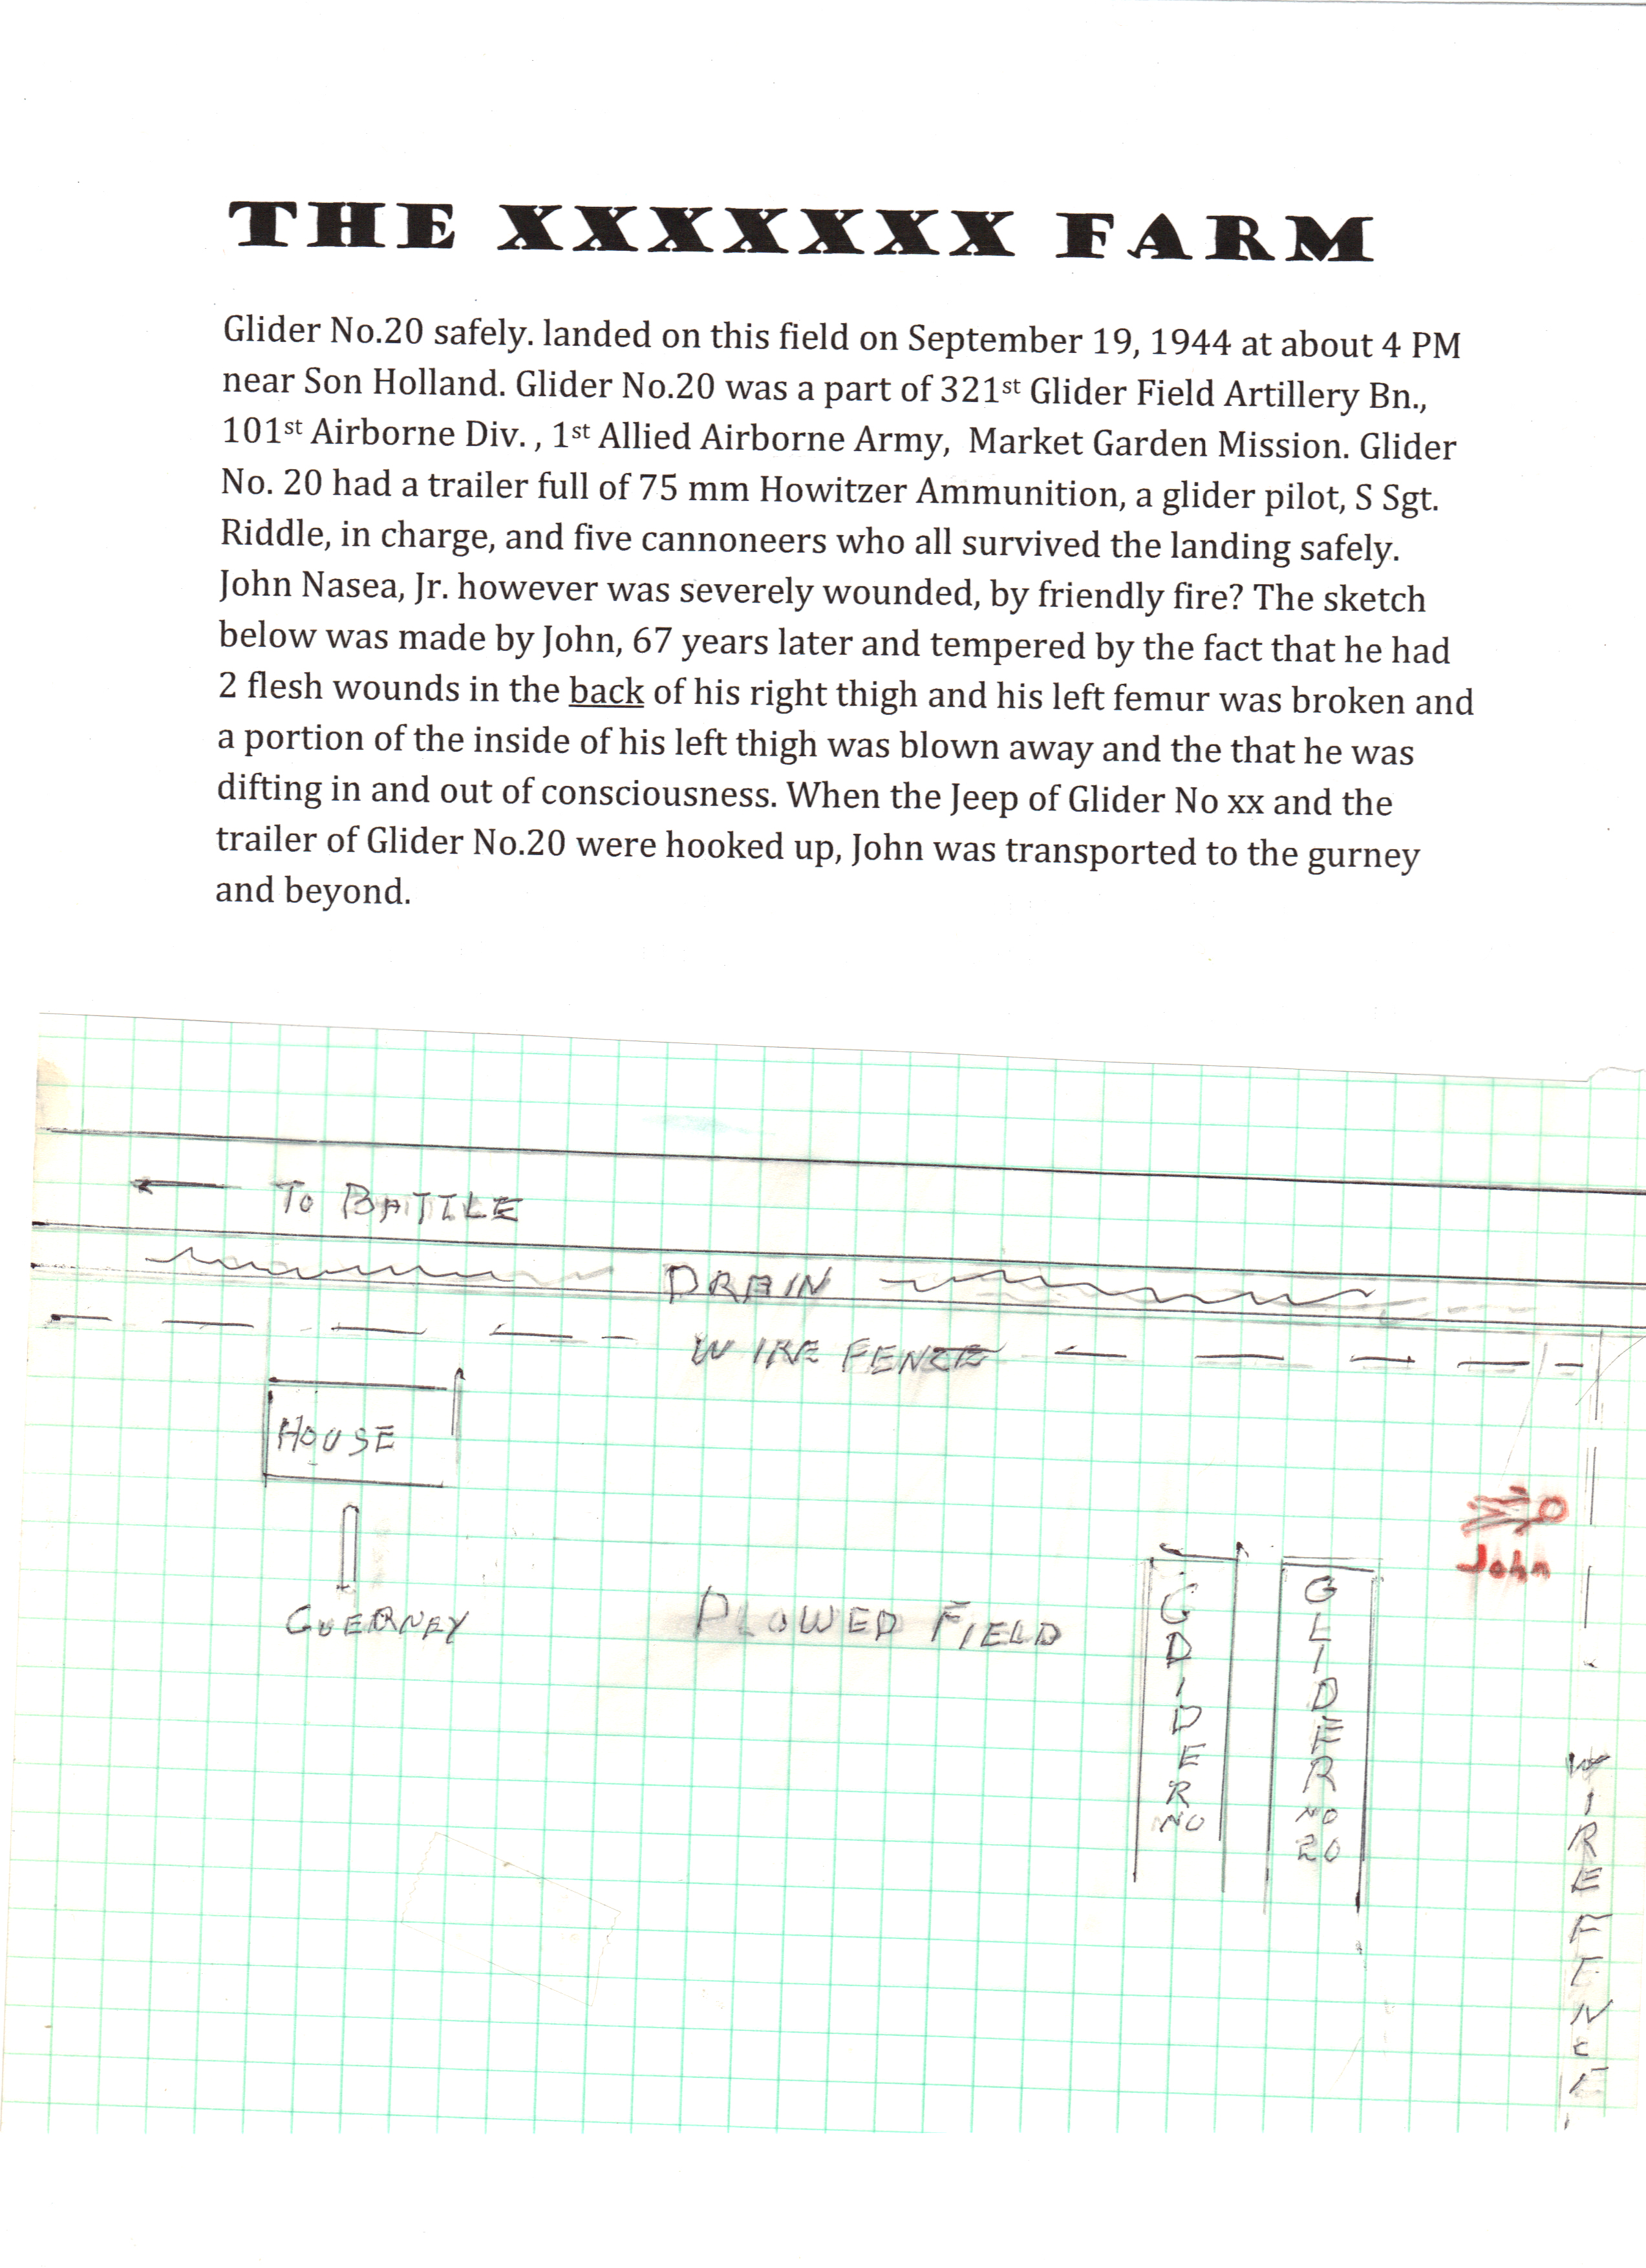 THE XXXXXXX FARM
Glider No.20 safely. landed on this field on September 19, 1944 at about 4 PM
near Son Holland. Glider No.20 was a part of 321st Glider Field Artillery Bn.,
101st Airborne Div. , 1st Allied Airborne Army, Market Garden Mission. Glider
No. 20 had a trailer full of 75 mm Howitzer Ammunition, a glider pilot, S Sgt.
Riddle, in charge, and five cannoneers who all survived the landing safely.
John Nasea, Jr. however was severely wounded, by friendly fire? The sketch
below was made by John, 67 years later and tempered by the fact that he had
2 flesh wounds in the back of his right thigh and his left femur was broken and
a portion of the inside of his left thigh was blown away and the that he was
difting in and out of consciousness. When the Jeep of Glider No xx and the
trailer of Glider No.20 were hooked up, John was transported to the gurney
and beyond.
TO BATTLE
DRAIN
WIRE FENCE
HOUSE
John
GUERNEY
PLOWED FIELD
GDIDER NO
GLIDER NO 20
WIRE FENCE